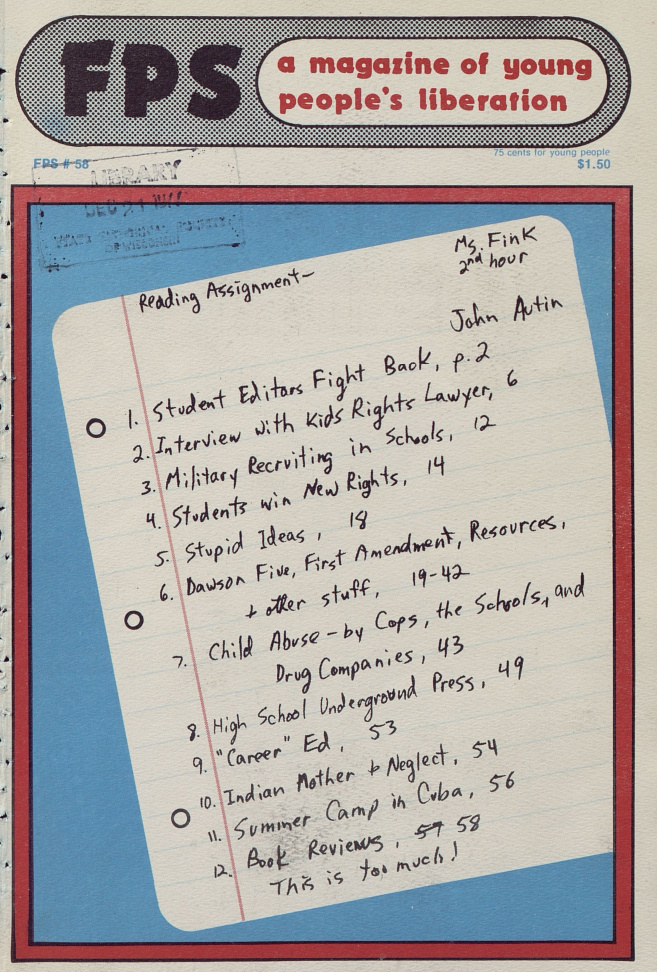 FPS
a magazine of young
people's liberation
FPS # 58
75 cents for young people
$1.50
LIBRARY
DEC 21
STATE HISTORICAL SOCIETY
OF WISCONSIN
Ms. Fink
2nd hour
Reading Assignment-
John Autin
1. Student Editors Fight Back, p.2
2. Interview with Kids Rights Lawyer, 6
3. Military Recruiting in Schools, 12
4. Students win New Rights, 14
5. Stupid Ideas, 18
6. Dawson Five, First Amendment, Resources,
+ other stuff, 19-42
7. Child Abuse - by Cops, the Schools, and
Drug Companies, 43
8. High School Underground Press, 49
9. "Career" Ed, 53
10. Indian Mother + Neglect, 54
11. Summer Camp in Cuba, 56
12. Book Reviews, 57 58
This is too much!